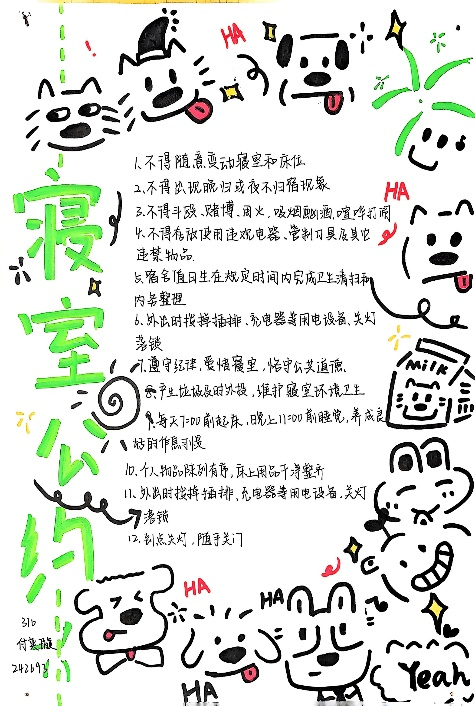 HA
寝室公约
1.不得随意变动寝室和床位
2.不得出现晚归或夜不归宿现象
3.不得斗殴、赌博、用火、吸烟酗酒、喧哗打闹
4.不得存放使用违规电器、管制刀具及其它
违禁物品
5.宿舍值日生在规定时间内完成卫生清扫和
内务整理
6.外出时拔掉插排、充电器等用电设备、关灯
落锁
7.遵守纪律,爱惜寝室,恪守公共道德.
产生垃圾及时外投,维护寝室环境卫生
每天7:00前起床,晚上11:00前睡觉,养成良
好的作息
10.个人物品陈列有序,床上用品干净整齐
11.外出时拔掉插排、充电器等用电设备、关灯
落锁
12.到点关灯,随手关门
HA
Milk
HA
HA
HA
Yeah
316